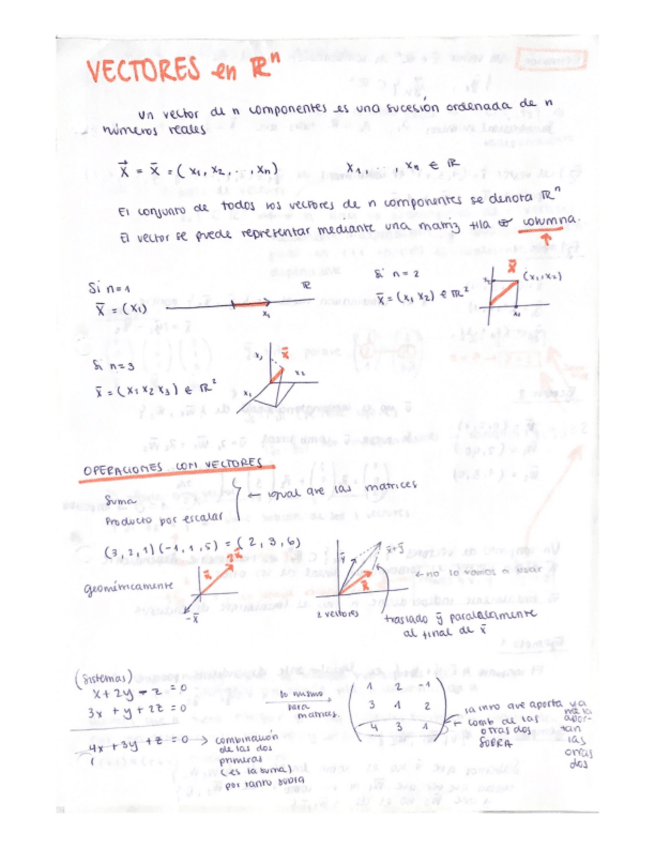 VECTORES en ℝⁿ
Un vector de n componentes es una sucesión ordenada de n
números reales
X⃗ = X̄ = (x₁, x₂, .., xₙ) x₁, ..., xₙ ∈ ℝ
El conjunto de todos los vectores de n componentes se denota ℝⁿ
El vector se puede representar mediante una matriz fila o columna.
Si n=1
X̄ = (x₁)
ℝ
x₁
Si n = 2
X̄ = (x₁ x₂) ∈ ℝ²
X̄
x₂
(x₁,x₂)
x₁
Si n=3
X̄ = (x₁ x₂ x₃) ∈ ℝ²
x₃
X̄
x₂
x₁
OPERACIONES CON VECTORES
Suma
Producto por escalar
← igual que las matrices
(3,2,1) (-1,1,5) = (2,3,6)
Geométricamente
x̄
2x̄
-x̄
ȳ
x̄+ȳ
x̄
← no lo vamos a usar
2 vectores
traslado ȳ paralelamente
al final de x̄
(sistemas)
x + 2y - z = 0
3x + y + 2z = 0
4x + 3y + z = 0 → combinación
de las dos
primeras
(es la suma)
por tanto sobra
lo mismo
para
matrices
1 2 -1
3 1 2
4 3 1
la info que aporta ya
na la
apor-
tan
las
otras
dos
← comb de las
otras dos
SOBRA